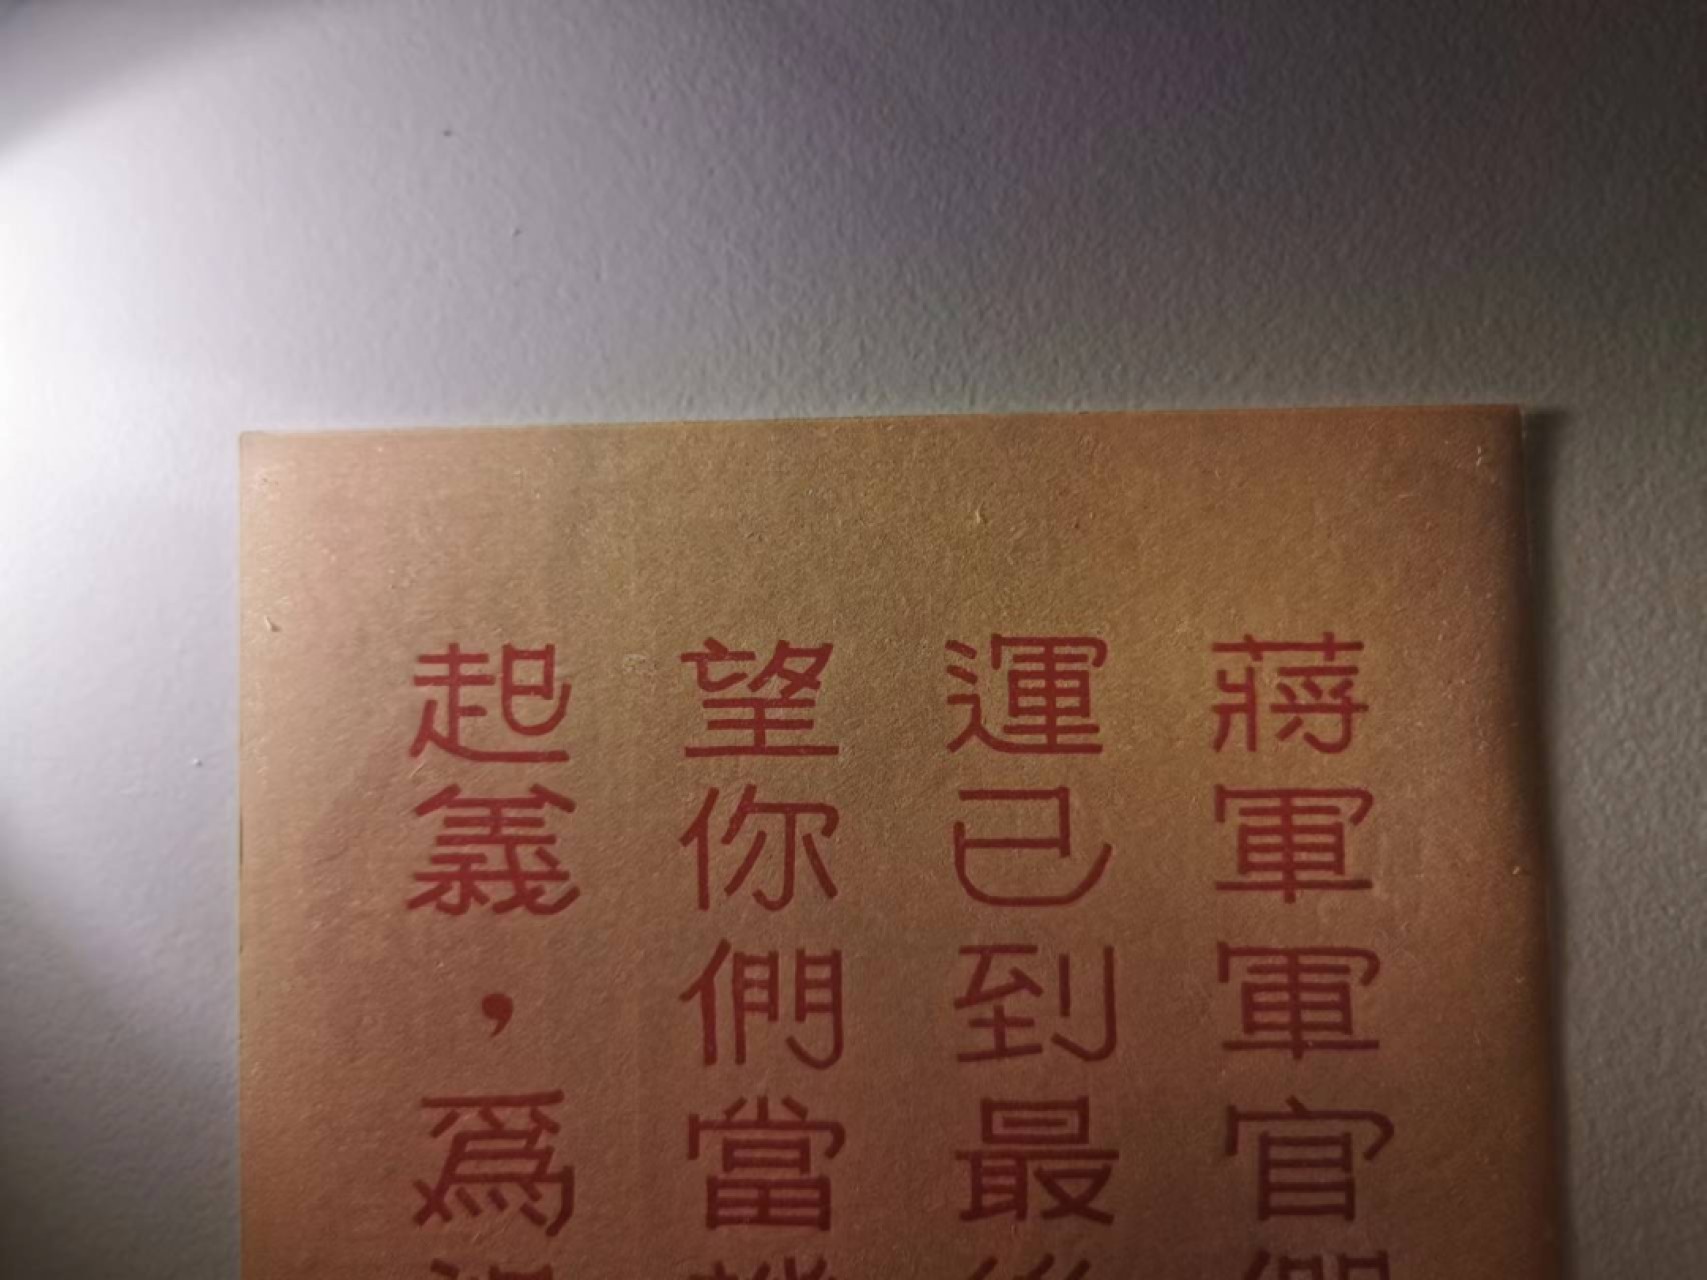 蔣軍軍官們
運已到最後
望你們當機
起義，爲